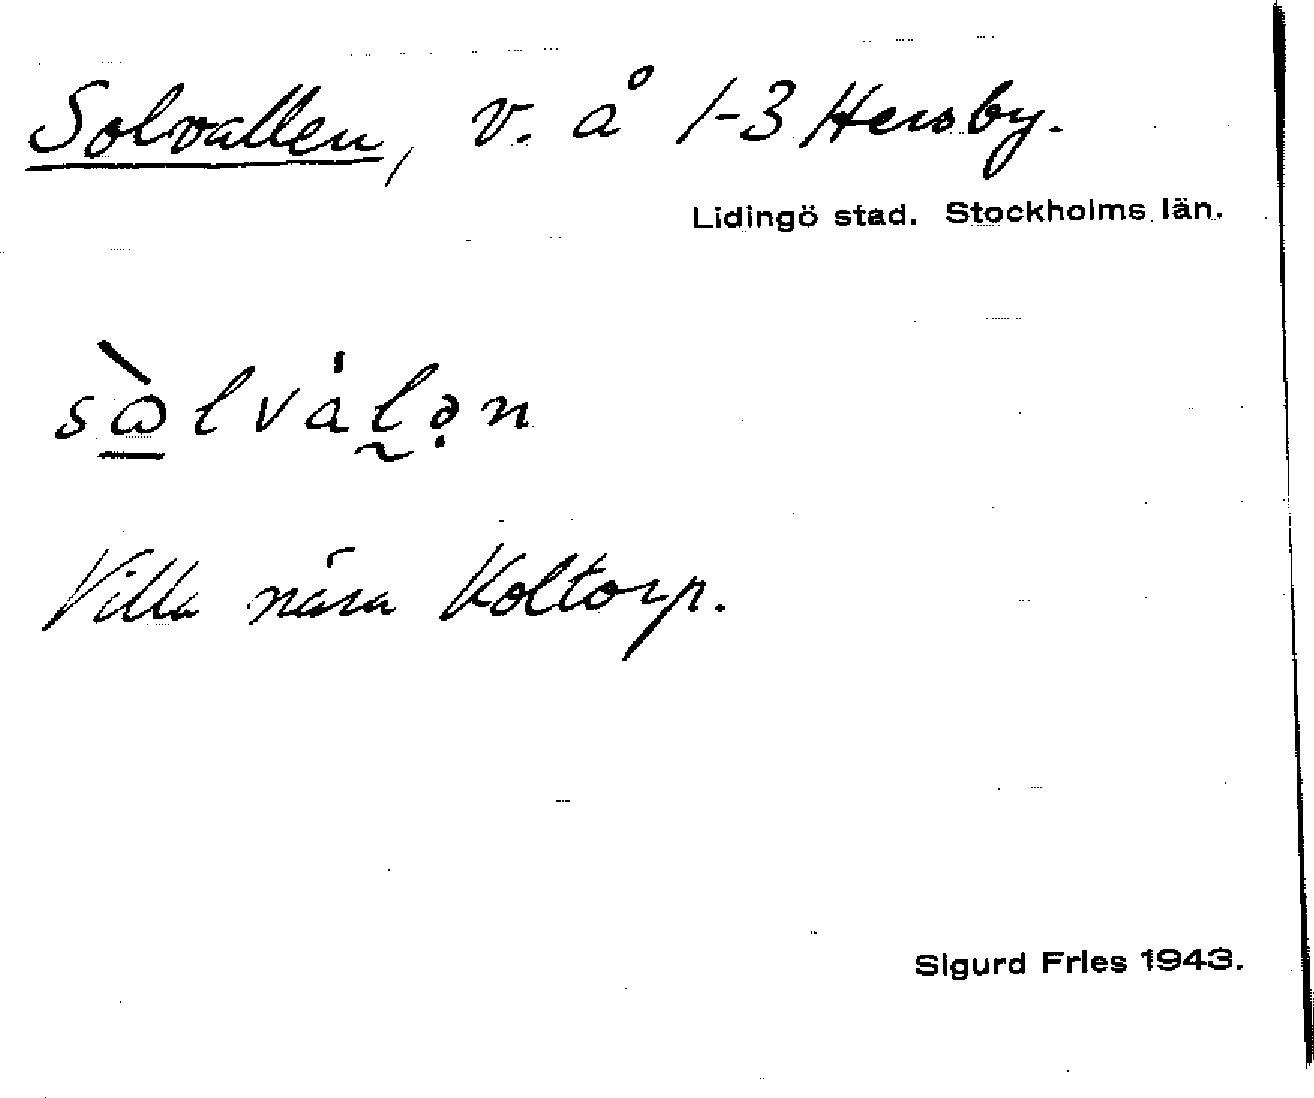 Solvallen, v. å 1-3 Hersby.
Lidingö stad. Stockholms län.
sὼ̲lváḻə̣n
Villa nära Koltorp.
Sigurd Fries 1943.